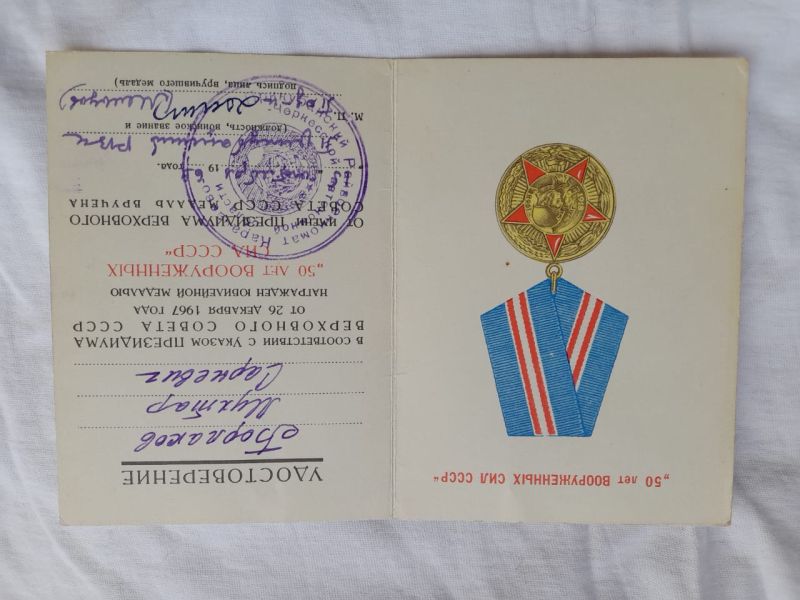 УДОСТОВЕРЕНИЕ
Борлаков
Мухтар
Сарневич
В СООТВЕТСТВИИ С УКАЗОМ ПРЕЗИДИУМА
ВЕРХОВНОГО СОВЕТА СССР
ОТ 26 ДЕКАБРЯ 1967 ГОДА
НАГРАЖДЕН ЮБИЛЕЙНОЙ МЕДАЛЬЮ
„50 ЛЕТ ВООРУЖЕННЫХ
СИЛ СССР“
ОТ ИМЕНИ ПРЕЗИДИУМА ВЕРХОВНОГО
СОВЕТА СССР МЕДАЛЬ ВРУЧЕНА
19 года.
(должность, воинское звание и
М. П.
подпись лица, вручившего медаль)
„50 лет ВООРУЖЕННЫХ СИЛ СССР“